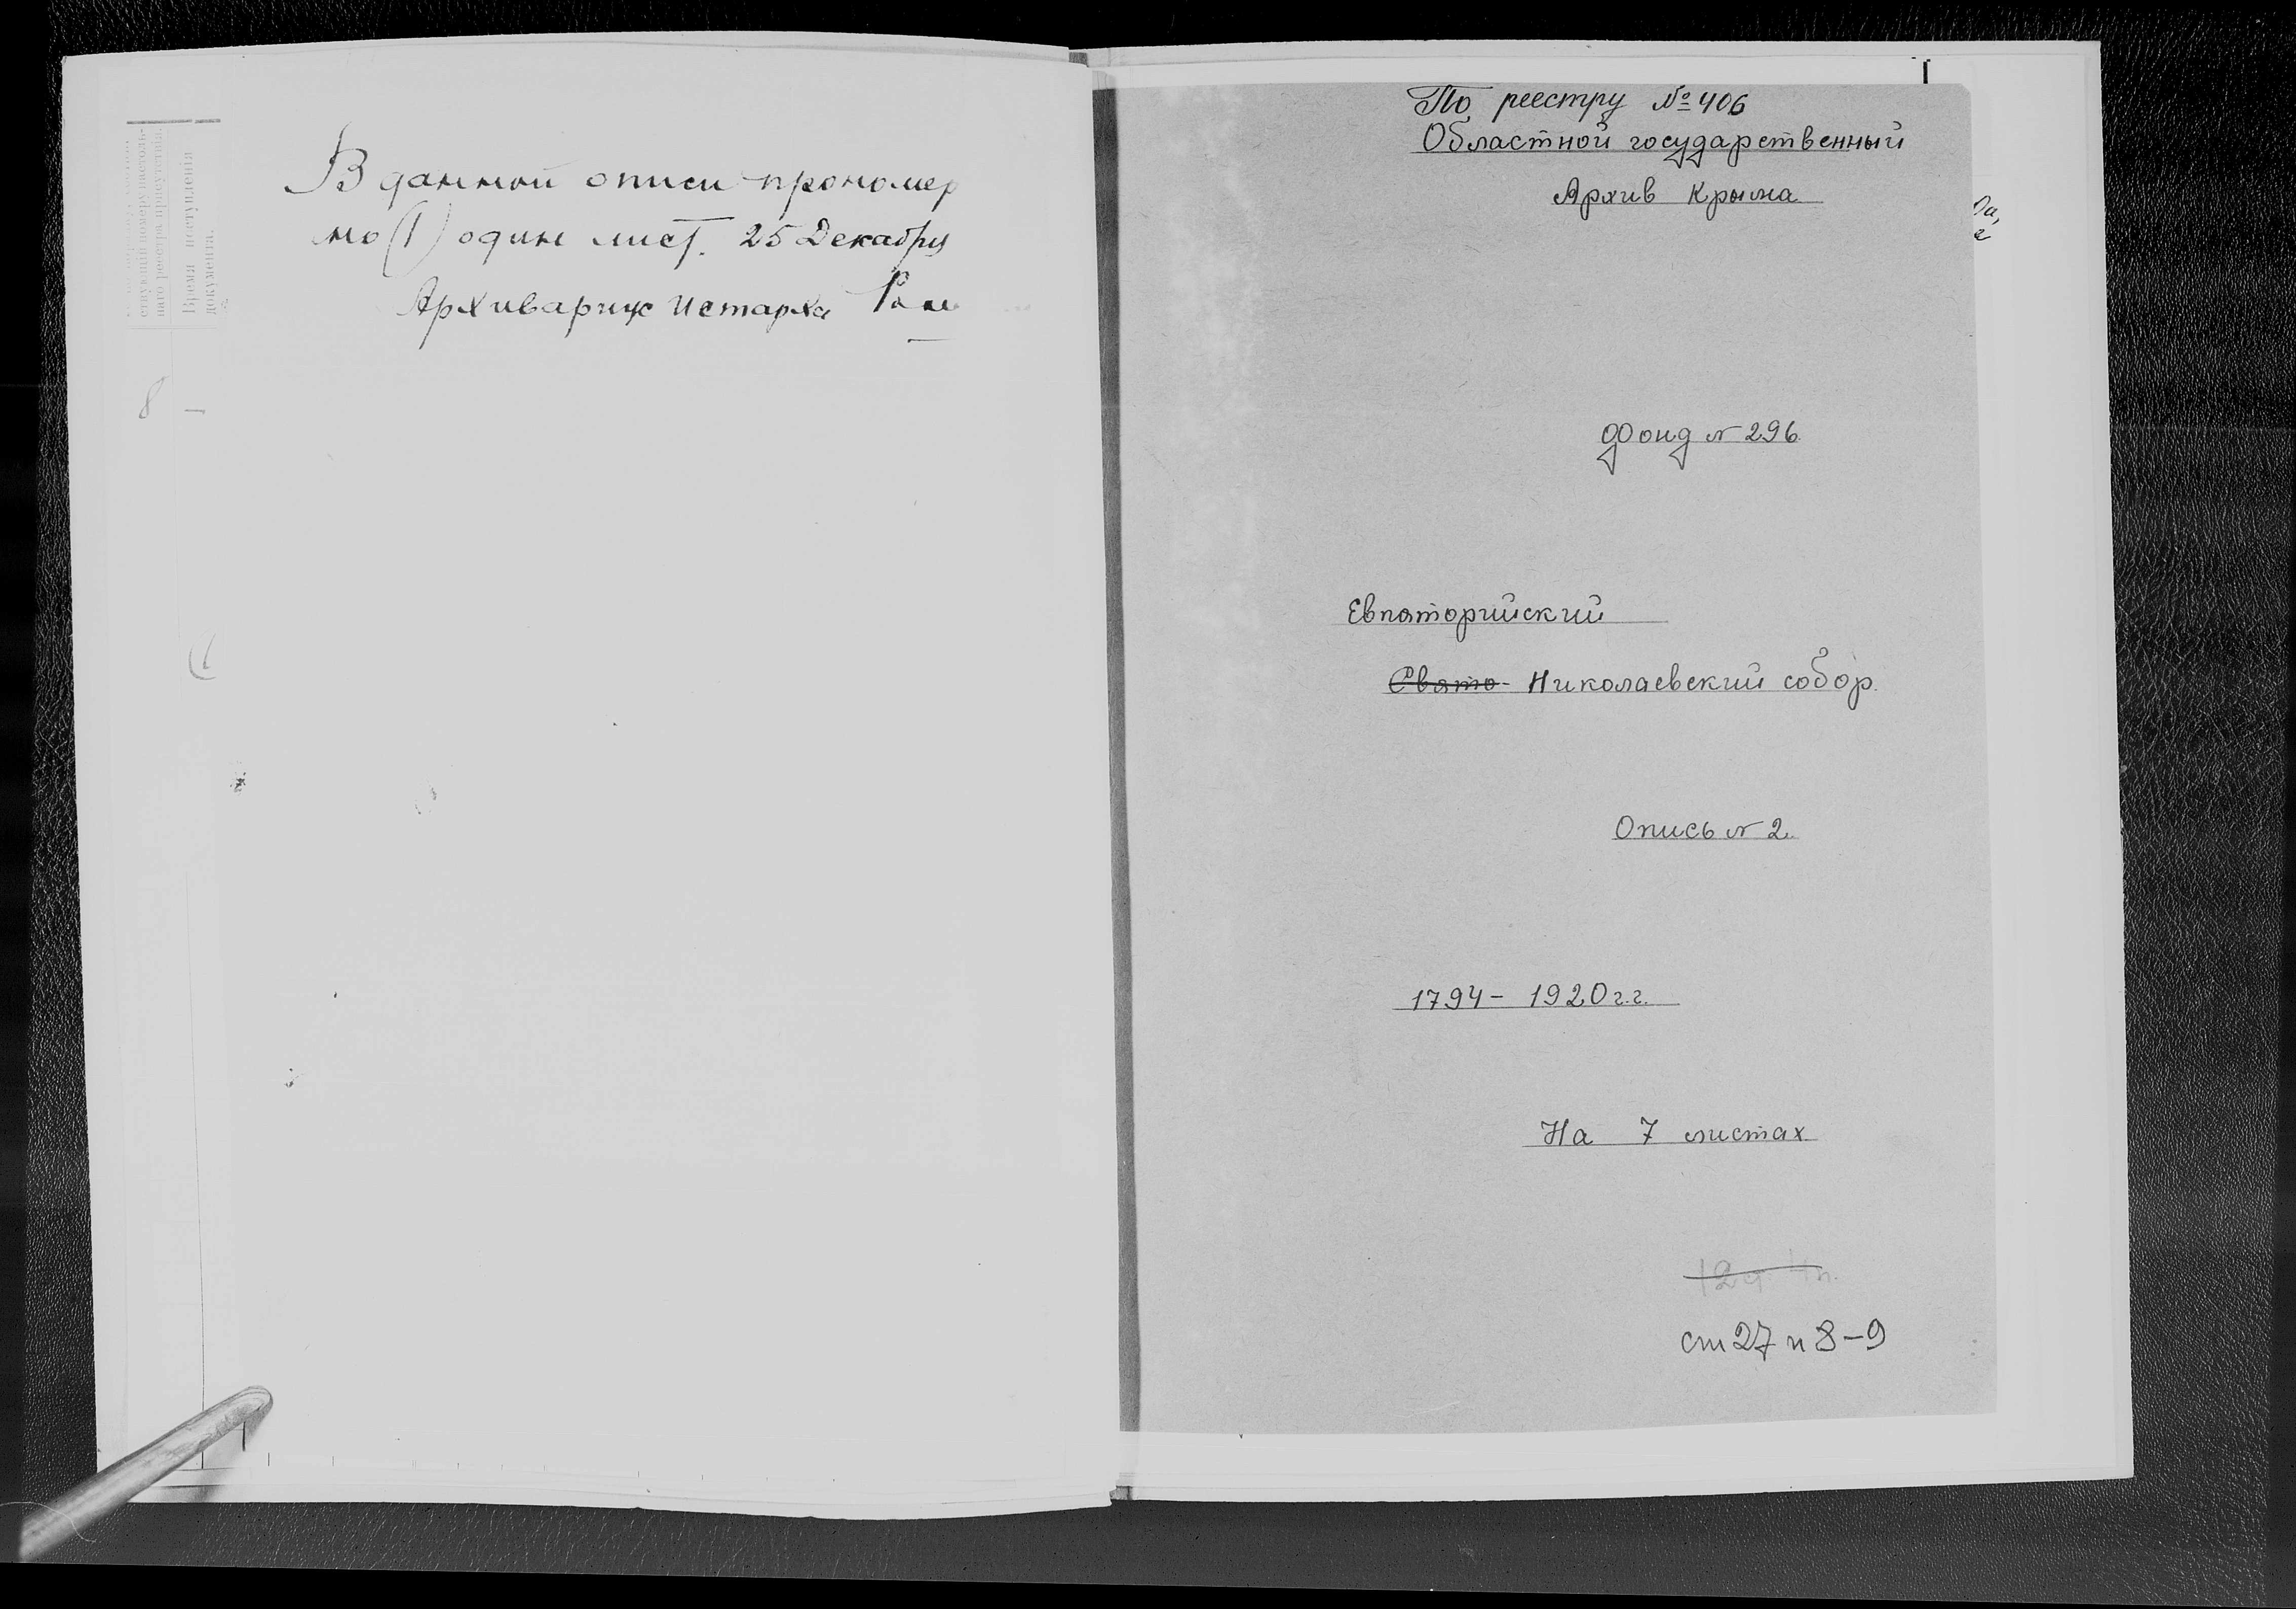 В данной описи прономер
но (1) один лист. 25 Декабря
Архивариус истарха
Время поступления
документа.
8 —
По реестру № 406
Областной государственный
Архив Крыма
Фонд № 296
Евпаторийский
Свято- Николаевский собор.
Опись № 2.
1794 – 1920 г.г.
На 7 листах
ст 27 п 8–9